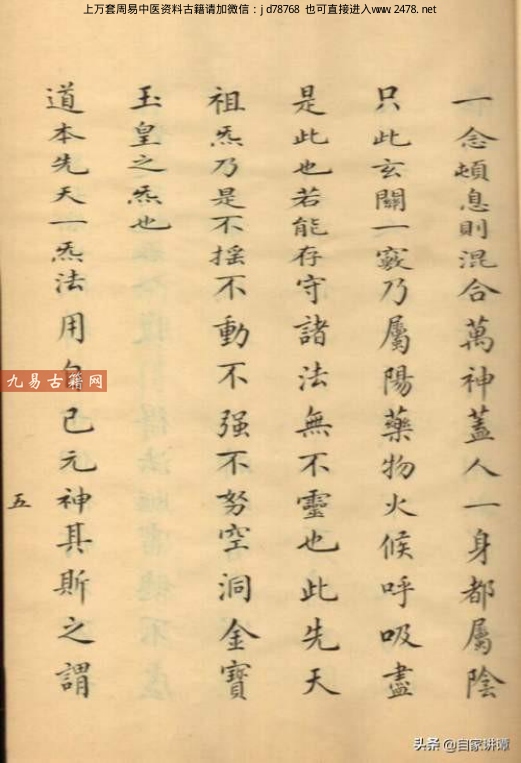 上万套周易中医资料古籍请加微信：jd78768 也可直接进入www.2478.net
一念頓息則混合萬神蓋人一身都屬陰
只此玄關一竅乃屬陽藥物火候呼吸盡
是此也若能存守諸法無不靈也此先天
祖炁乃是不搖不動不强不努空洞金寶
玉皇之炁也
道本先天一炁法用自己元神其斯之謂
五
九易古籍网
头条 @自家讲谭